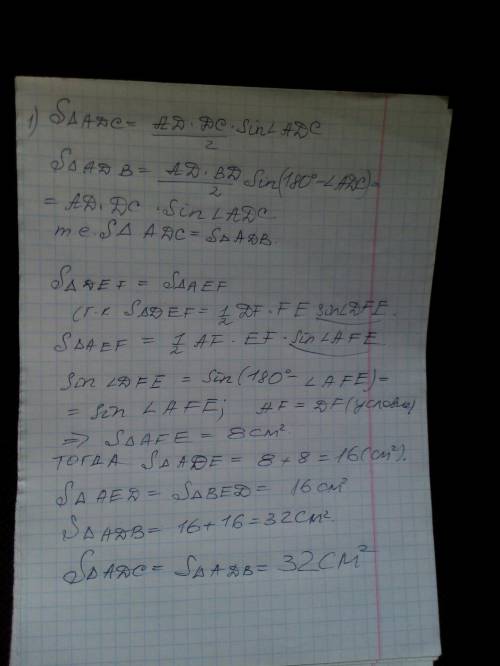 1) S△ADC = AD·DC/2 · Sin∠ADC
S△ADB = AD·BD/2 Sin(180°-∠ADC)=
= AD·DC · Sin∠ADC
т.е. S△ADC = S△ADB.
S△DEF = S△AEF
(т.к S△DEF = 1/2 DF · FE sin∠DFE.
S△AEF = 1/2 AF · EF · sin∠AFE
Sin∠DFE = Sin(180°-∠AFE)=
= Sin∠AFE; AF = DF (условие)
⇒ S△AFE = 8см².
тогда S△ADE = 8+8=16(см²).
S△AED = S△BED = 16см²
S△ADB = 16+16=32см².
S△ADC = S△ADB = 32см²